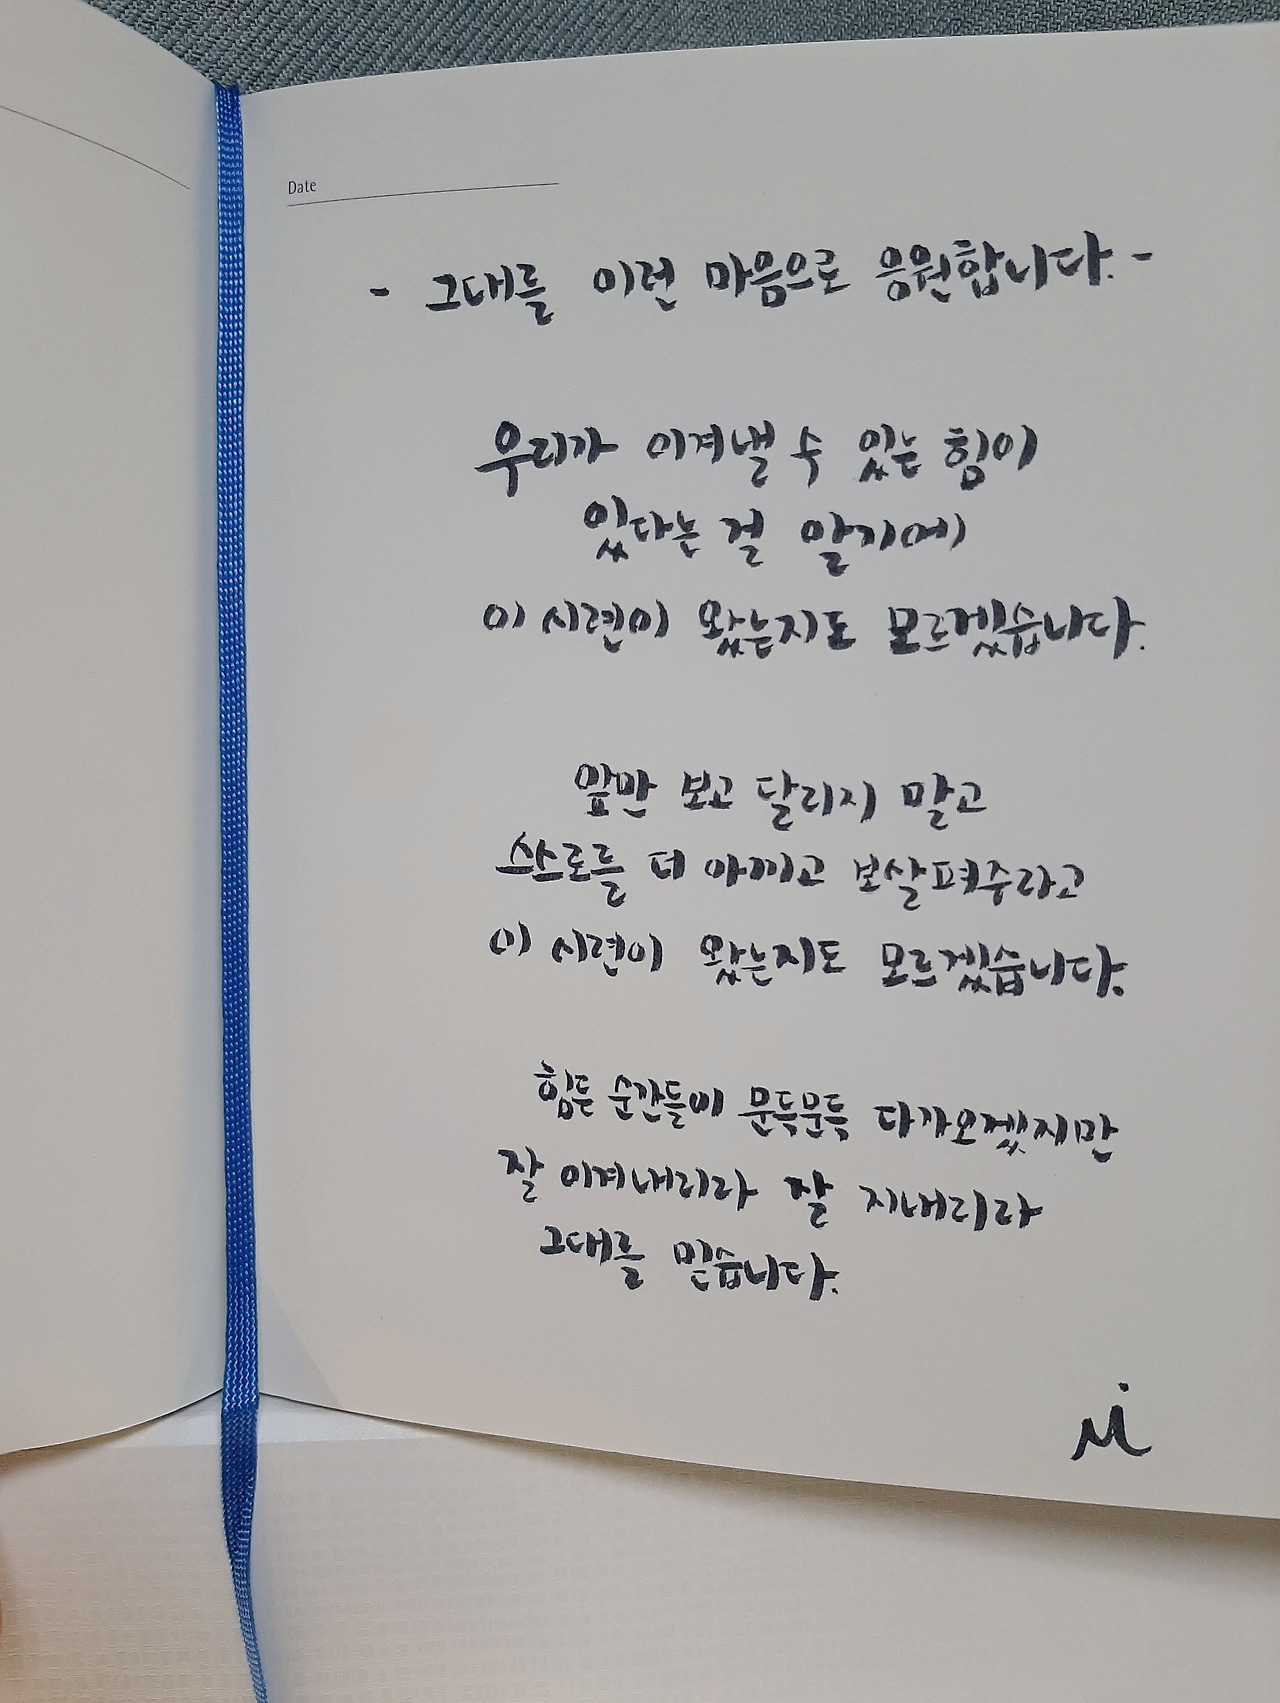 Date
- 그대를 이런 마음으로 응원합니다. -
우리가 이겨낼 수 있는 힘이
있다는 걸 알기에
이 시련이 왔는지도 모르겠습니다.
앞만 보고 달리지 말고
스스로를 더 아끼고 보살펴주라고
이 시련이 왔는지도 모르겠습니다.
힘든 순간들이 문득문득 다가오겠지만
잘 이겨내리라 잘 지내리라
그대를 믿습니다.